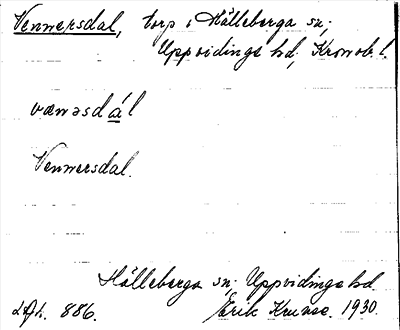 Vennersdal, torp i Hälleberga sn;
Uppvidinge hd, Kronob. l.
vænəsdál
Vennersdal.
Hälleberga sn; Uppvidinge hd
Erik 1930.
886.